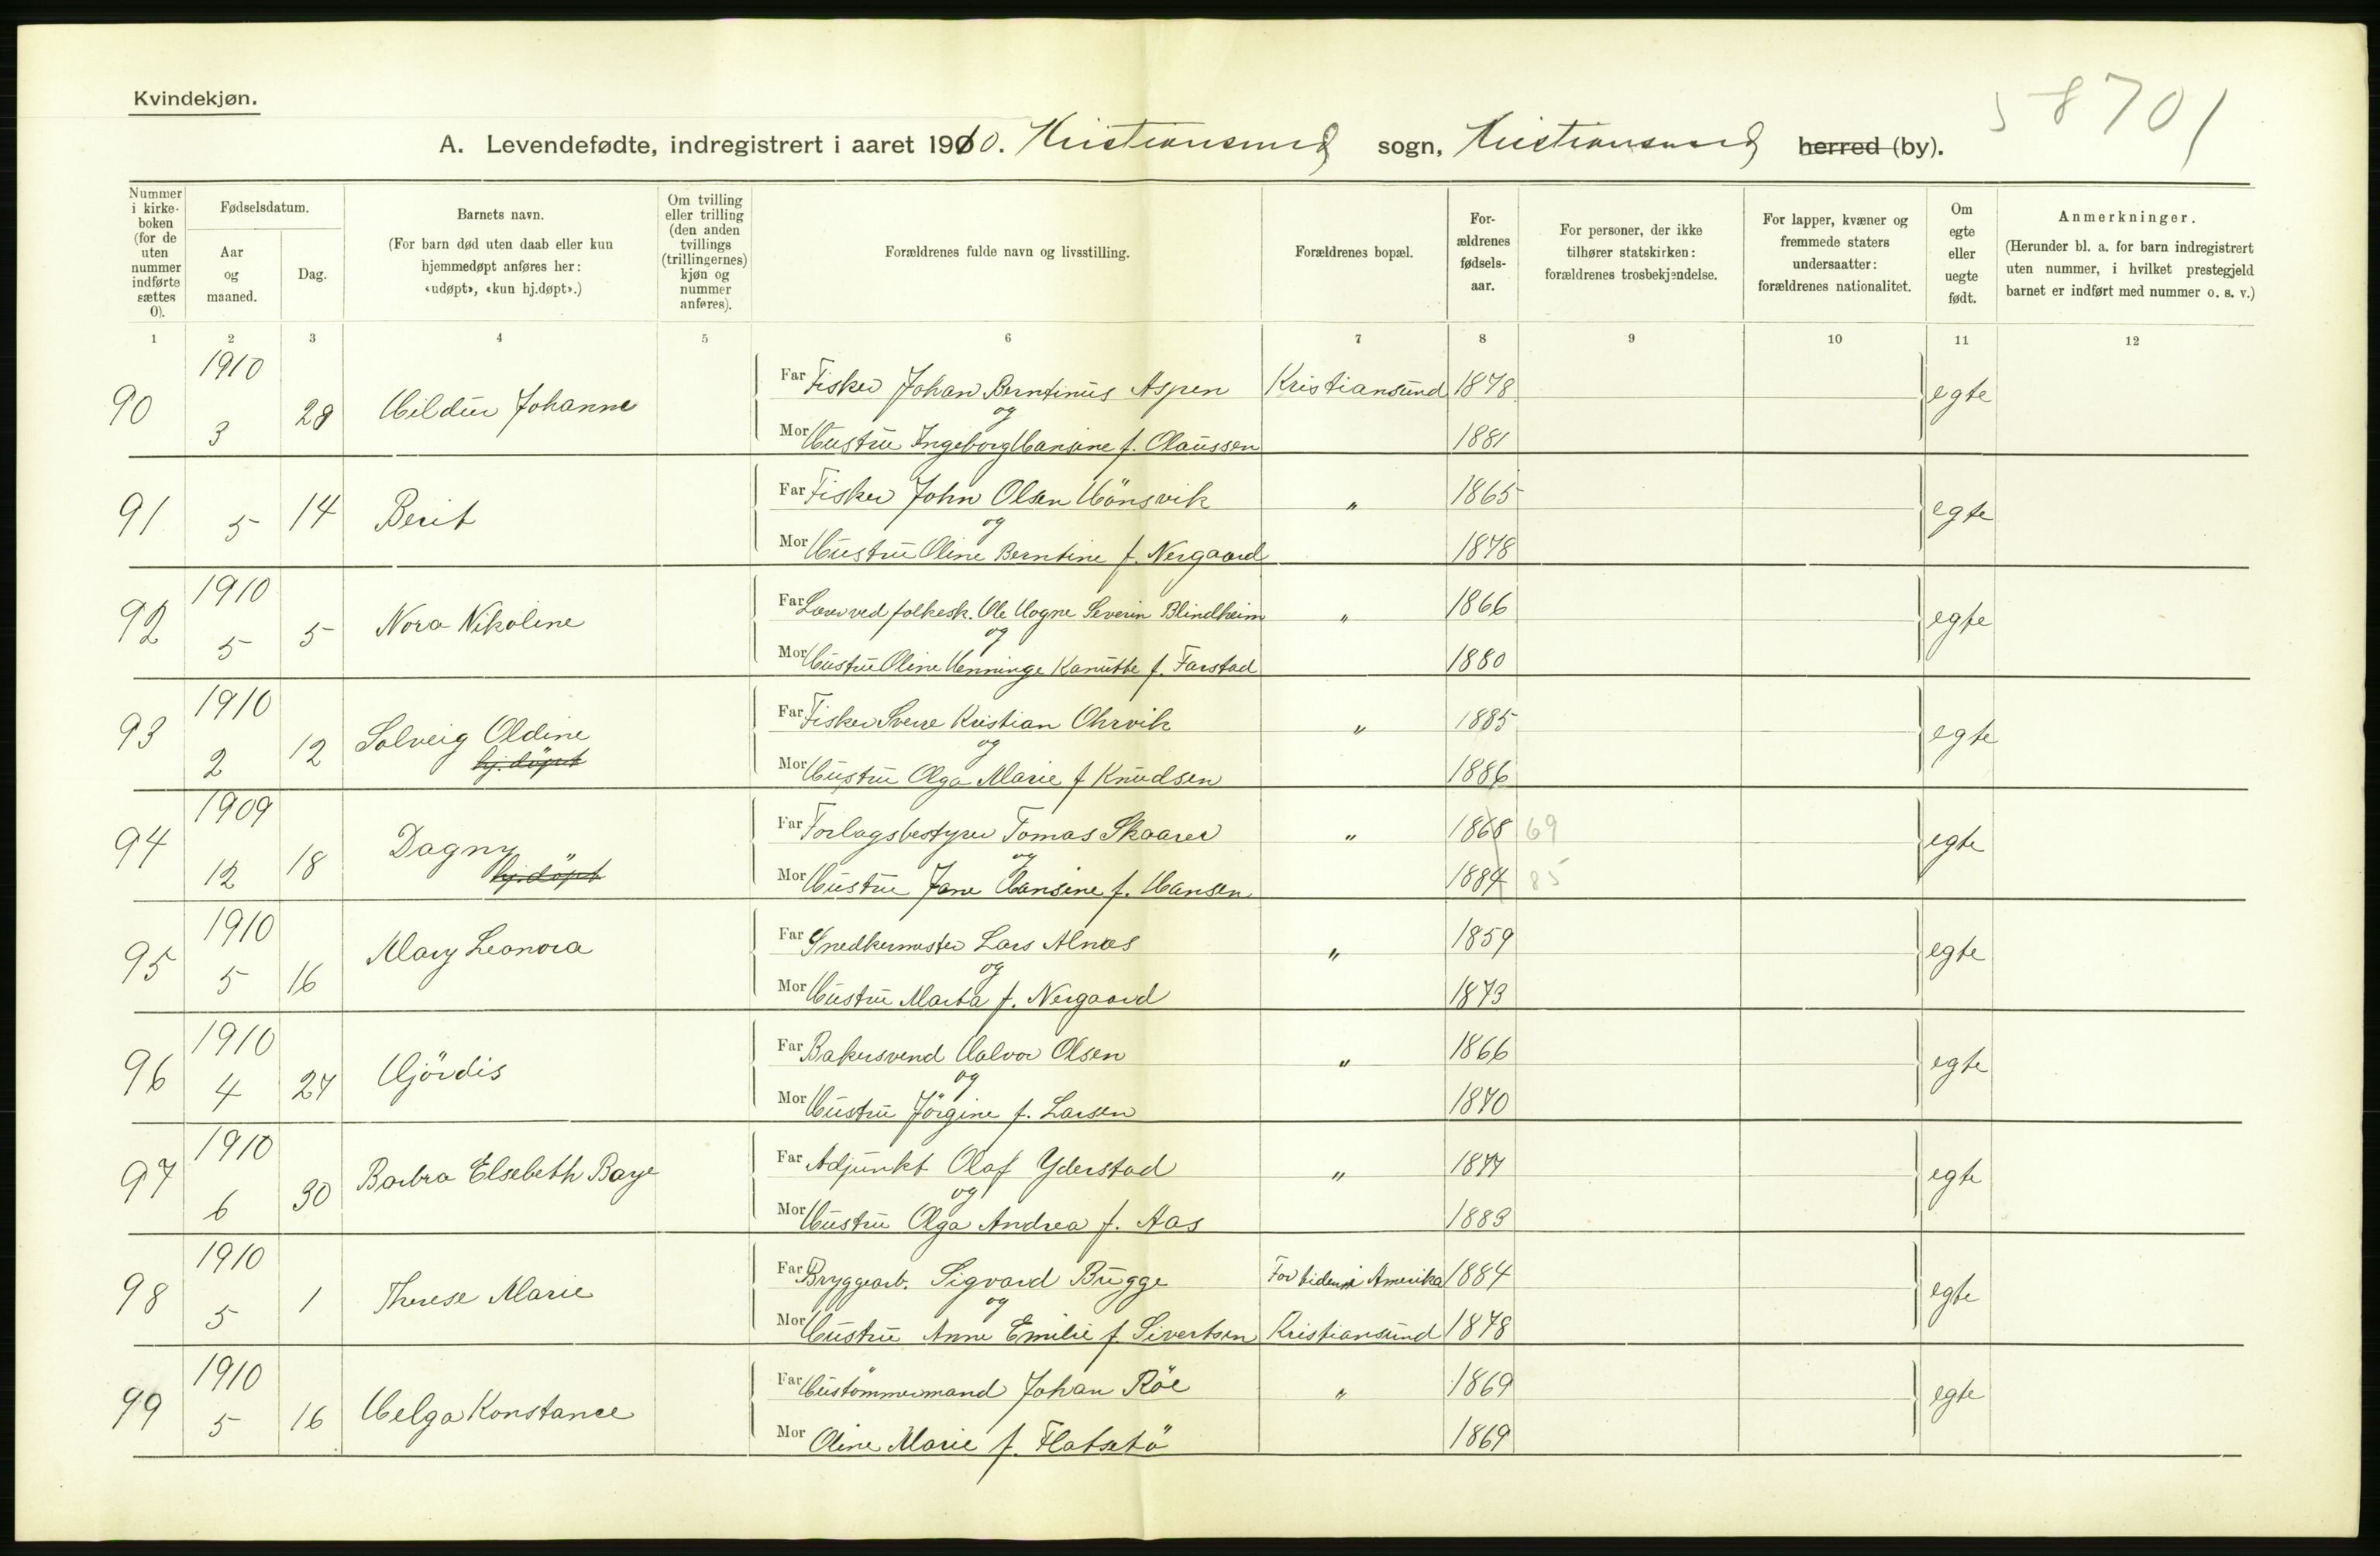 Kvindekjøn.
58701
A. Levendefødte, indregistrert i aaret 1910. Kristiansund sogn, Kristiansund herred (by).
Nummer i kirkeboken (for de uten nummer indførte sættes 0).
Fødselsdatum.
Aar og maaned.
Dag.
Barnets navn.
(For barn død uten daab eller kun hjemmedøpt anføres her: «udøpt», «kun hj.døpt».)
Om tvilling eller trilling (den anden tvillings (trillingernes) kjøn og nummer anføres).
Forældrenes fulde navn og livsstilling.
Forældrenes bopæl.
Forældrenes fødselsaar.
For personer, der ikke tilhører statskirken: forældrenes trosbekjendelse.
For lapper, kvæner og fremmede staters undersaatter: forældrenes nationalitet.
Om egte eller uegte født.
Anmerkninger.
(Herunder bl. a. for barn indregistrert uten nummer, i hvilket prestegjeld barnet er indført med nummer o. s. v.)
1 2 3 4 5 6 7 8 9 10 11 12
90 1910 3 28 Hildur Johanne Far Fisker Johan Berntinus Aspen Kristiansund 1878 egte
og
Mor Hustru Ingeborg Hansine f. Olaussen 1881
91 5 14 Berit Far Fisker John Olsen Hönsvik " 1865 egte
og
Mor Hustru Oline Berntine f. Nergaard 1878
92 1910 5 5 Nora Nikoline Far Lærer ved folkesk. Ole Hogne Severin Blindheim " 1866 egte
og
Mor Hustru Oline Henninge Kanutte f. Farstad 1880
93 1910 2 12 Solveig Oldine Far Fisker Sverre Kristian Ohrvik " 1885 egte
hj. döpt
og
Mor Hustru Olga Marie f Knudsen 1886
94 1909 12 18 Dagny Far Forlagsbestyrer Tomas Skaarer " 1868 69 egte
hj. döpt
og
Mor Hustru Jane Hansine f. Hansen 1884 85
95 1910 5 16 Mary Leonora Far Snedkermester Lars Alnæs " 1859 egte
og
Mor Hustru Marta f. Nergaard 1873
96 1910 4 27 Hjördis Far Bakersvend Halvor Olsen " 1866 egte
og
Mor Hustru Jörgine f. Larsen 1870
97 1910 6 30 Barbra Elsebeth Baye Far Adjunkt Olaf Yderstad " 1877 egte
og
Mor Hustru Olga Andrea f. Aas 1883
98 1910 5 1 Therese Marie Far Bryggearb. Sigvard Brügge For tiden i Amerika 1884 egte
og
Mor Hustru Anne Emilie f. Sivertsen Kristiansund 1878
99 1910 5 16 Helga Konstance Far Hustömmermand Johan Röe " 1869 egte
Mor Oline Marie f. Flatsetö 1869